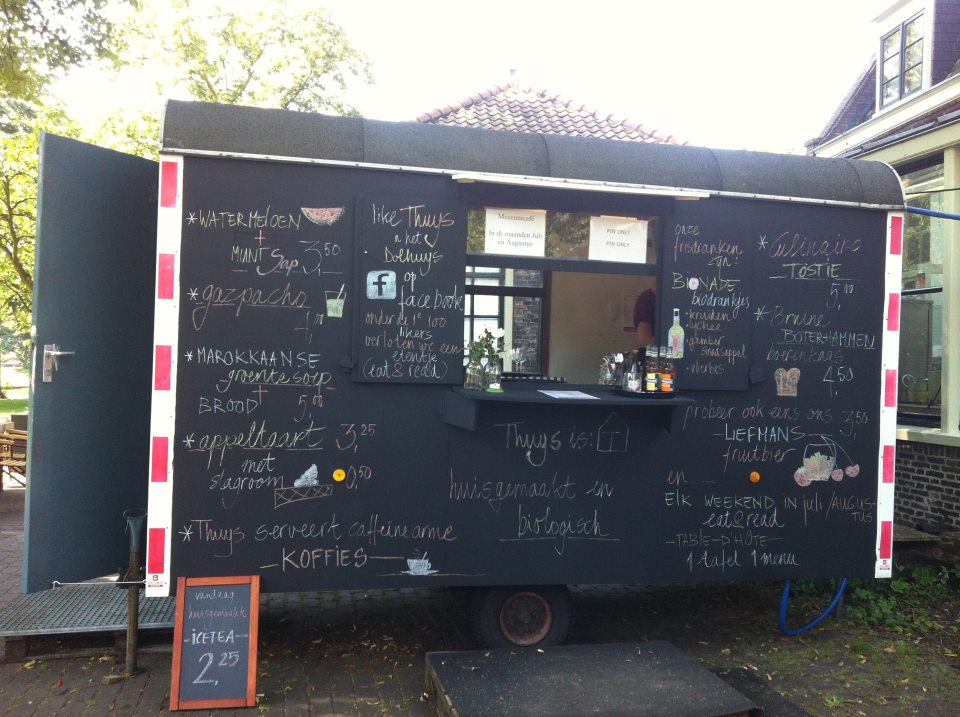 *WATERMELOEN
+
MUNT Sap 3,50
*gazpacho
4,00
*MAROKKAANSE
groentesoep
+
BROOD 5,00
*appeltaart 3,25
met
slagroom 0,50
*Thuys serveert caffeinearme
-KOFFIES-
like Thuys
n het
Dolhuys
op
f
facebook
onder de 1e 100
likers
verloten we een
etentje
(eat & read)
Museumcafé
In de maanden Juli
en Augustus
PIN ONLY
PIN ONLY
onze
frisdranken
zijn:
BIONADE
biodrankjes
• kruiden
• lychee
• gember
sinaasappel
• vlierbes
*Culinaire
TOSTIE
5,00
*Bruine
BOTERHAMMEN
boerenkaas
4,50
probeer ook eens ons 3,50
-LIEFMANS
fruitbier
en ...
Elk WEEKEND IN juli/AUGUS-
TUS
eat & read
-TABLE-D'HÔTE-
1 tafel 1 menu
Thuys is:
huisgemaakt en
biologisch
vandaag
huisgemaakte
-ICETEA-
2,25